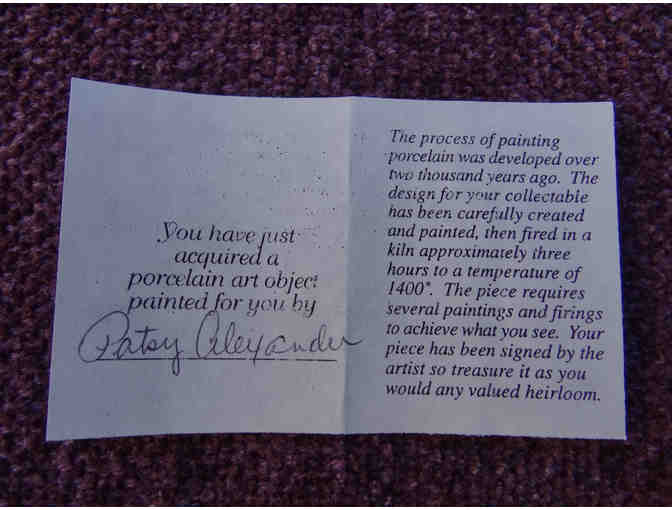 You have just
acquired a
porcelain art object
painted for you by
Patsy Alexander
The process of painting
porcelain was developed over
two thousand years ago. The
design for your collectable
has been carefully created
and painted, then fired in a
kiln approximately three
hours to a temperature of
1400°. The piece requires
several paintings and firings
to achieve what you see. Your
piece has been signed by the
artist so treasure it as you
would any valued heirloom.